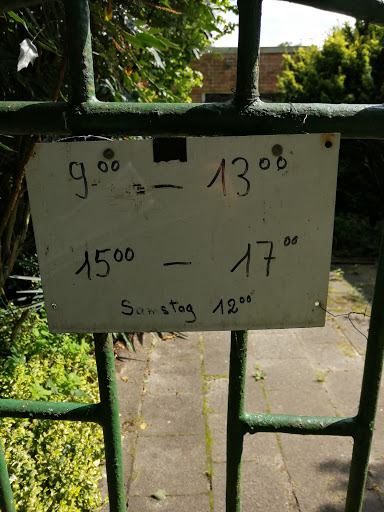 9⁰⁰ – 13⁰⁰
15⁰⁰ – 17⁰⁰
Samstag 12⁰⁰